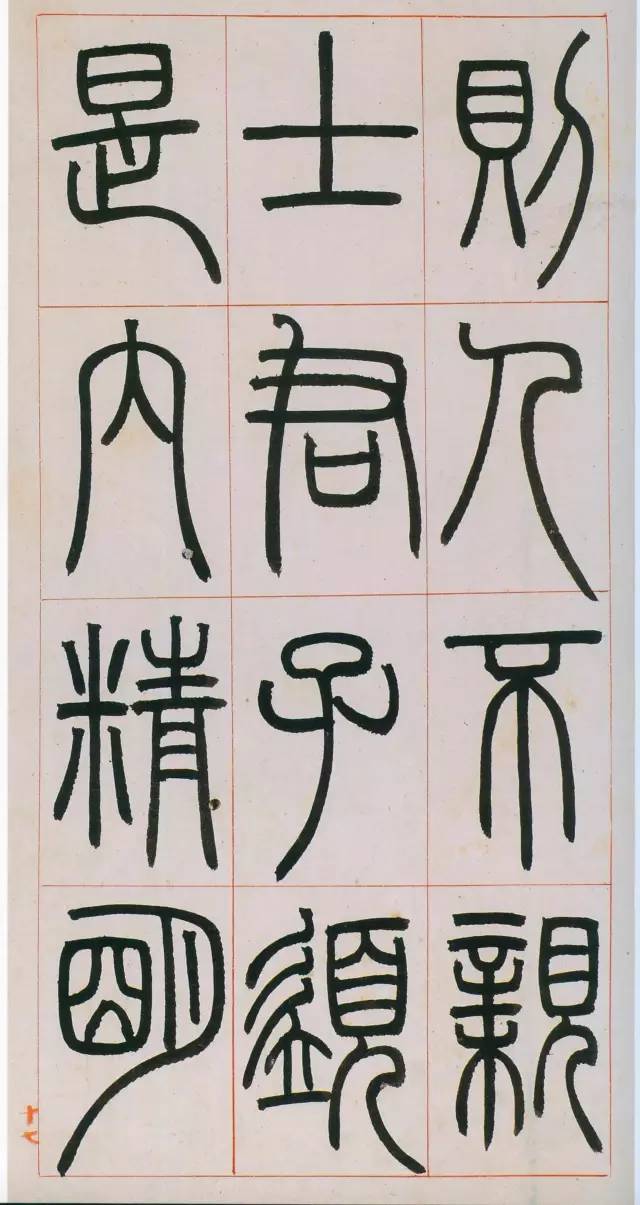 則人不親
士君子須
是內精明
十九